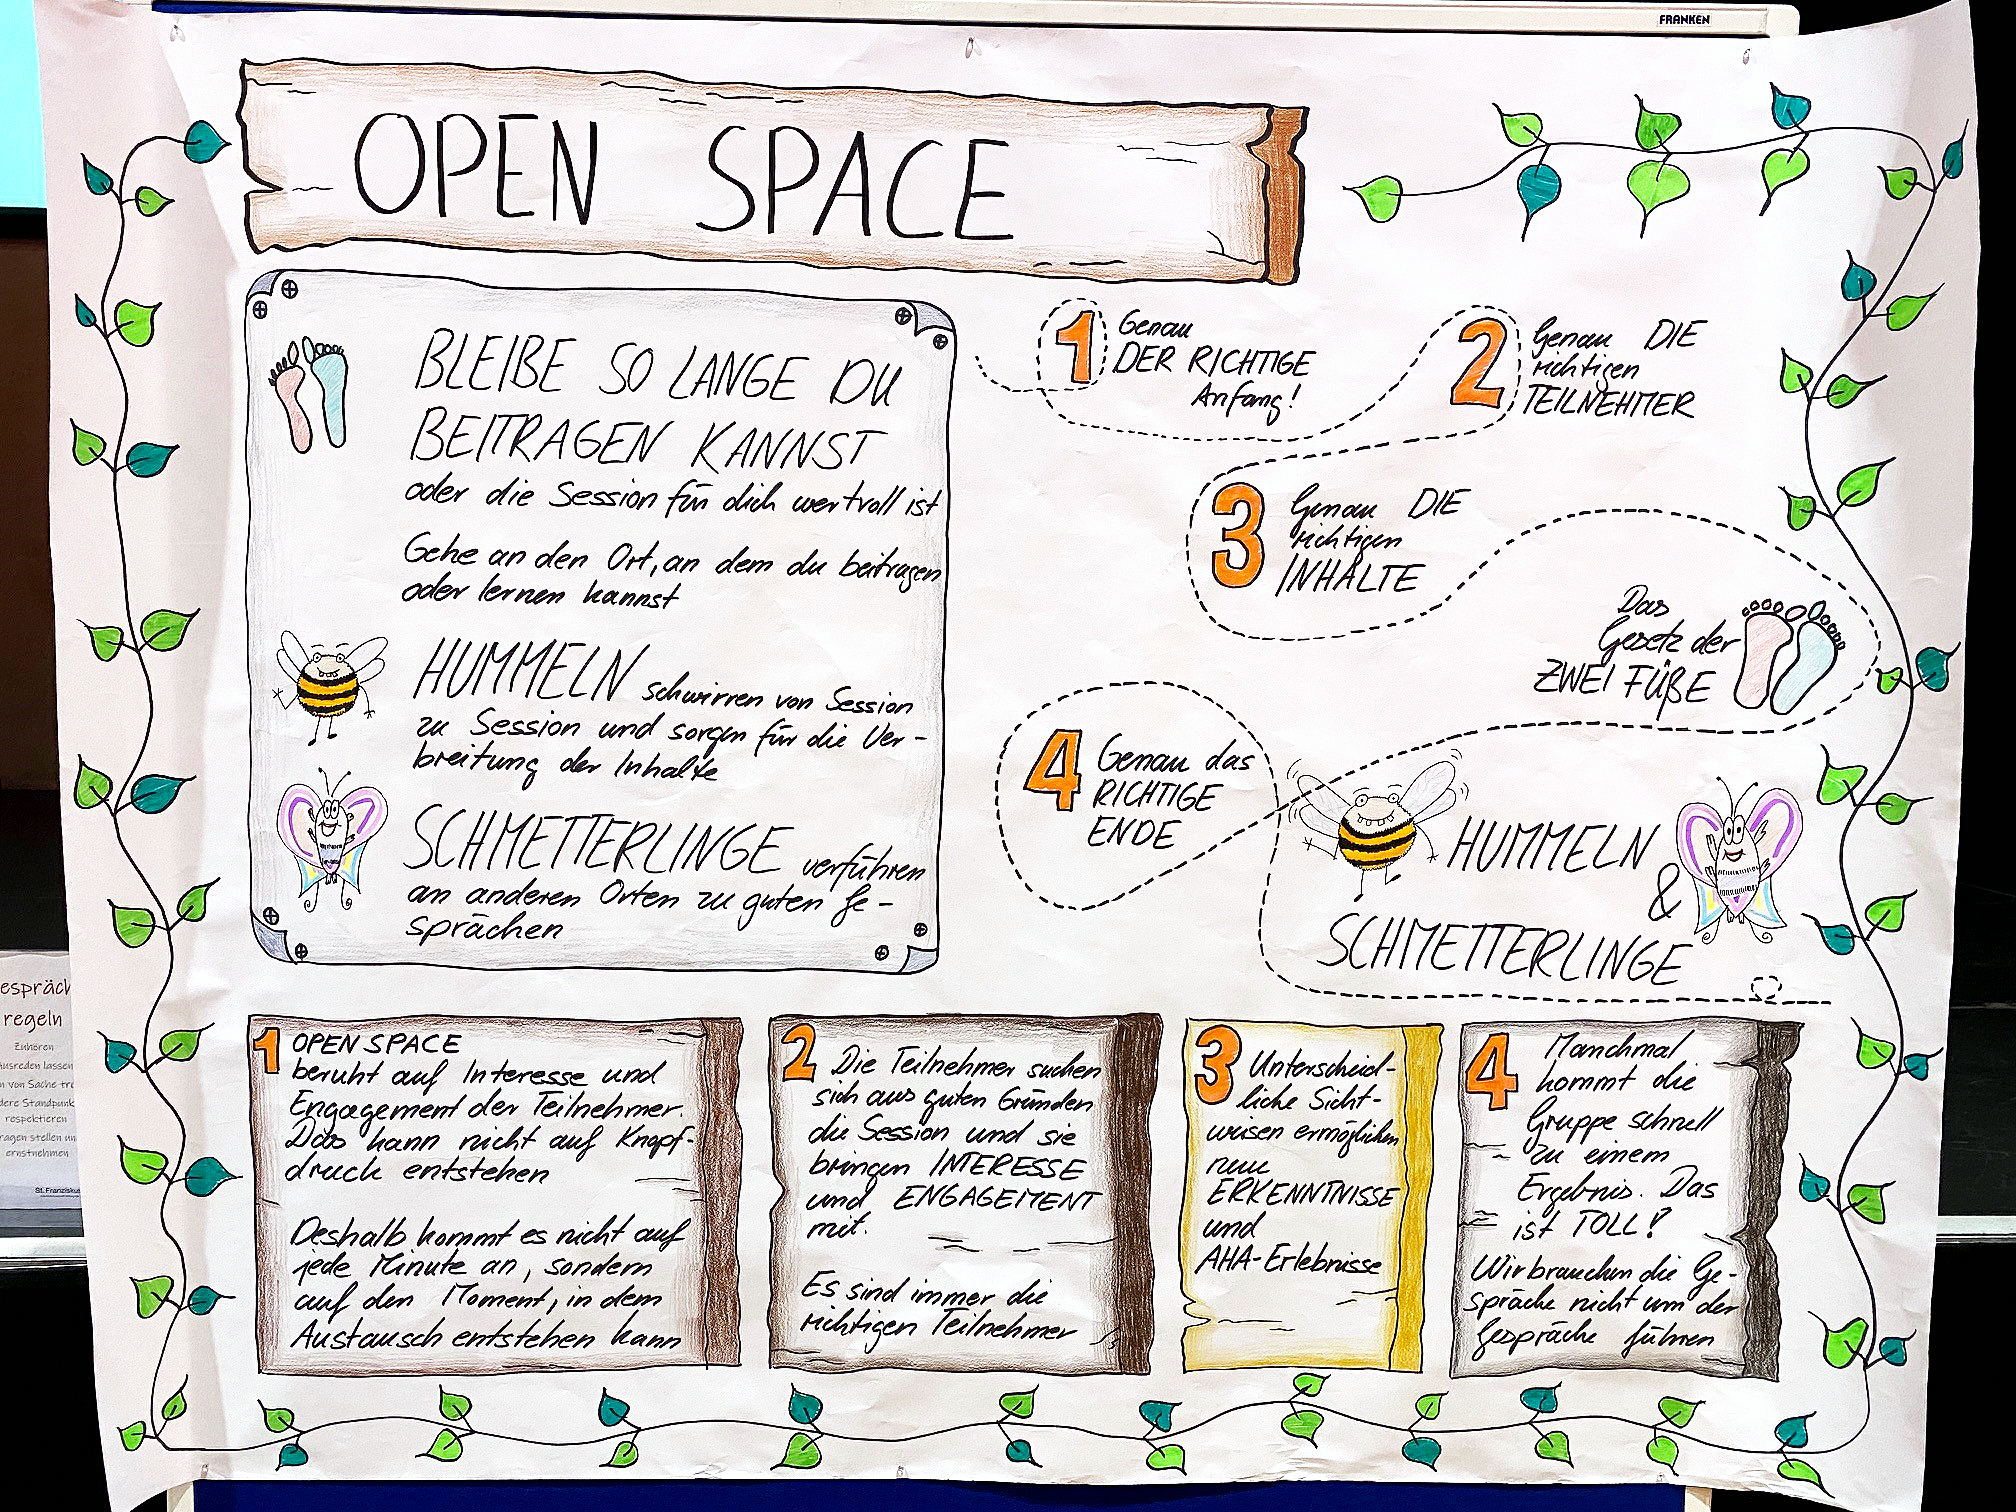 FRANKEN
OPEN SPACE
BLEIBE SO LANGE DU
BEITRAGEN KANNST
oder die Session für dich wertvoll ist
Gehe an den Ort, an dem du beitragen
oder lernen kannst
HUMMELN schwirren von Session
zu Session und sorgen für die Ver-
breitung der Inhalte
SCHMETTERLINGE verführen
an anderen Orten zu guten Ge-
sprächen
1 Genau
DER RICHTIGE
Anfang!
2 Genau DIE
richtigen
TEILNEHMER
3 Genau DIE
richtigen
INHALTE
Das
Gesetz der
ZWEI FÜßE
4 Genau das
RICHTIGE
ENDE
HUMMELN
&
SCHMETTERLINGE
1 OPEN SPACE
beruht auf Interesse und
Engagement der Teilnehmer.
Das kann nicht auf Knopf-
druck entstehen
Deshalb kommt es nicht auf
jede Minute an, sondern
auf den Moment, in dem
Austausch entstehen kann
2 Die Teilnehmer suchen
sich aus guten Gründen
die Session und sie
bringen INTERESSE
und ENGAGEMENT
mit.
Es sind immer die
richtigen Teilnehmer
3 Unterschied-
liche Sicht-
weisen ermöglichen
neue
ERKENNTNISSE
und
AHA-Erlebnisse
4 Manchmal
kommt die
Gruppe schnell
zu einem
Ergebnis. Das
ist TOLL!
Wir brauchen die Ge-
spräche nicht um der
Gespräche führen
espräch
regeln
Zuhören
usreden lassen
n von Sache tre
dere Standpunk
respektieren
ragen stellen un
ernstnehmen
St. Franziskus